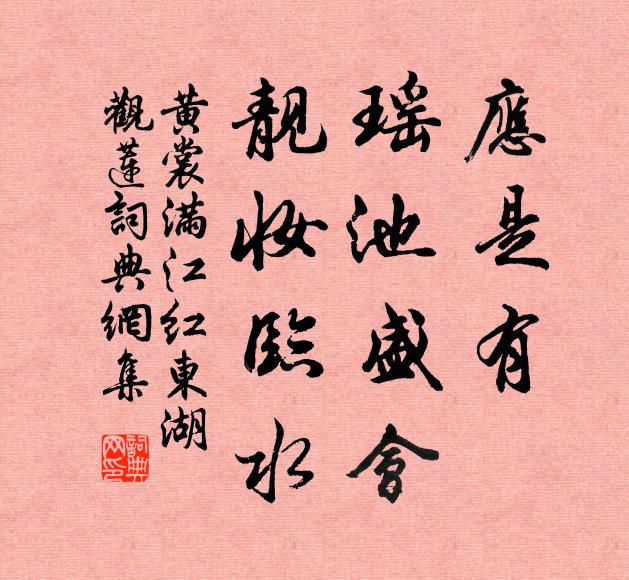 應是有
瑶池盛會
靚妆臨水
黄裳滿江红東湖
觀蓮詞典網集
詞典网印